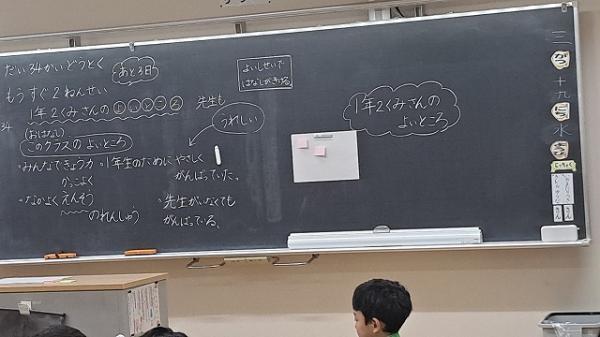 だい34かいどうとく
あと3日
もうすぐ2ねんせい
1年2くみさんのよいところ
34
(おはなし)
このクラスのよいところ
・みんなできょうカ
かっこよく
・なかよくえんそう
のれんしゅう
・1年生のためにやさしく
がんばっていた。
・先生がいなくても
がんばっている。
先生も
うれしい
よいしせいで
はなしがきける。
1年2くみさんの
よいところ
三
がつ
十九
にち
水
ようび
にっちょく
さん
さん